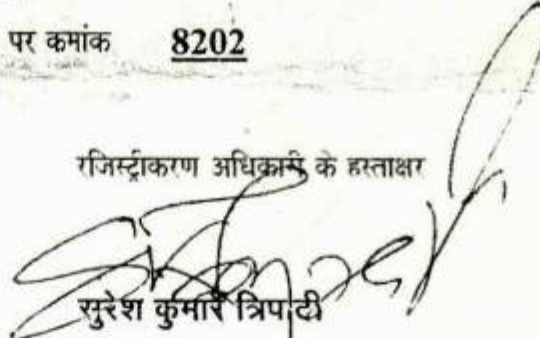 पर कमांक 8202
रजिस्ट्रीकरण अधिकारी के हस्ताक्षर
सुरेश कुमार त्रिपाठी